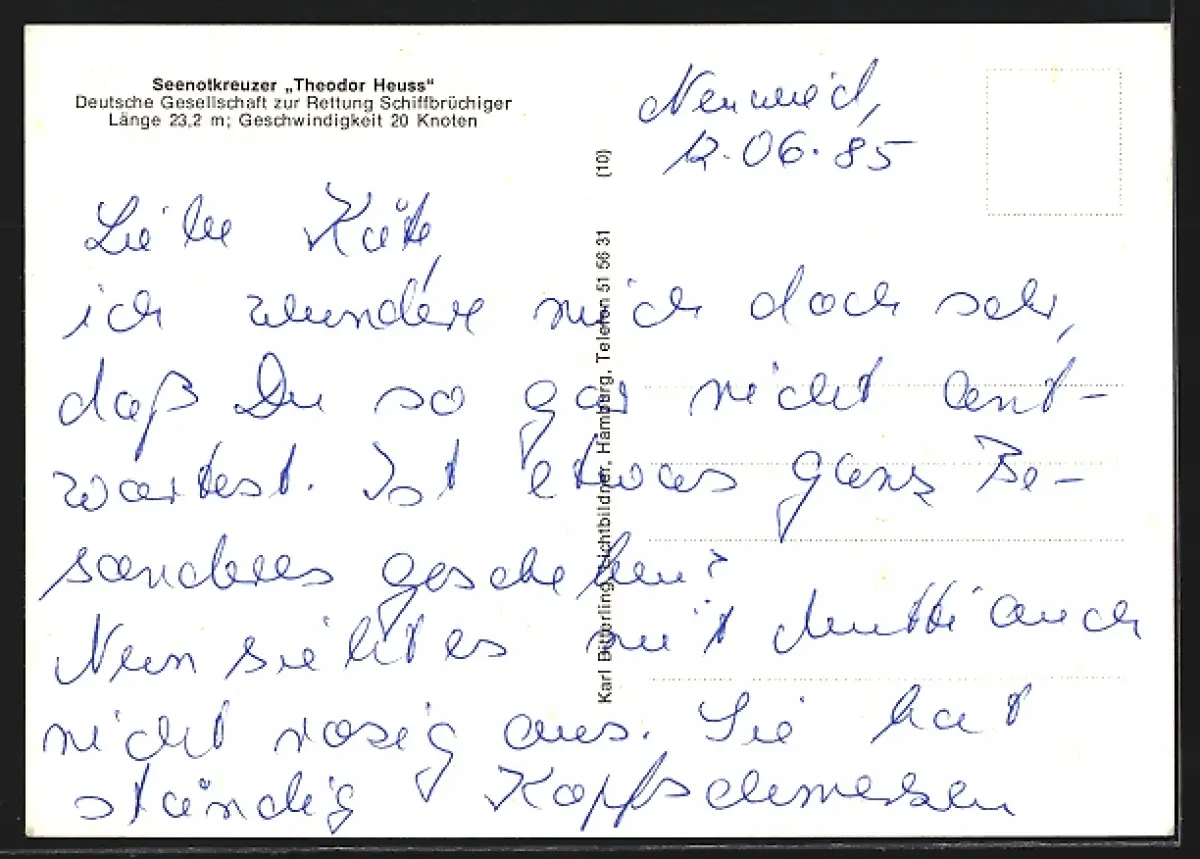 Seenotkreuzer „Theodor Heuss“
Deutsche Gesellschaft zur Rettung Schiffbrüchiger
Länge 23,2 m; Geschwindigkeit 20 Knoten
Neuwied,
12.06.85
Liebe Käte,
ich wundere mich doch sehr,
daß Du so gar nicht ant-
wortest. Ist etwas ganz Be-
sonderes geschehen?
Nun sieht es mit Mutti auch
nicht rosig aus. Sie hat
ständig Kopfschmerzen
Karl Bitterling, Lichtbildner, Hamburg, Telefon 51 56 31 (10)